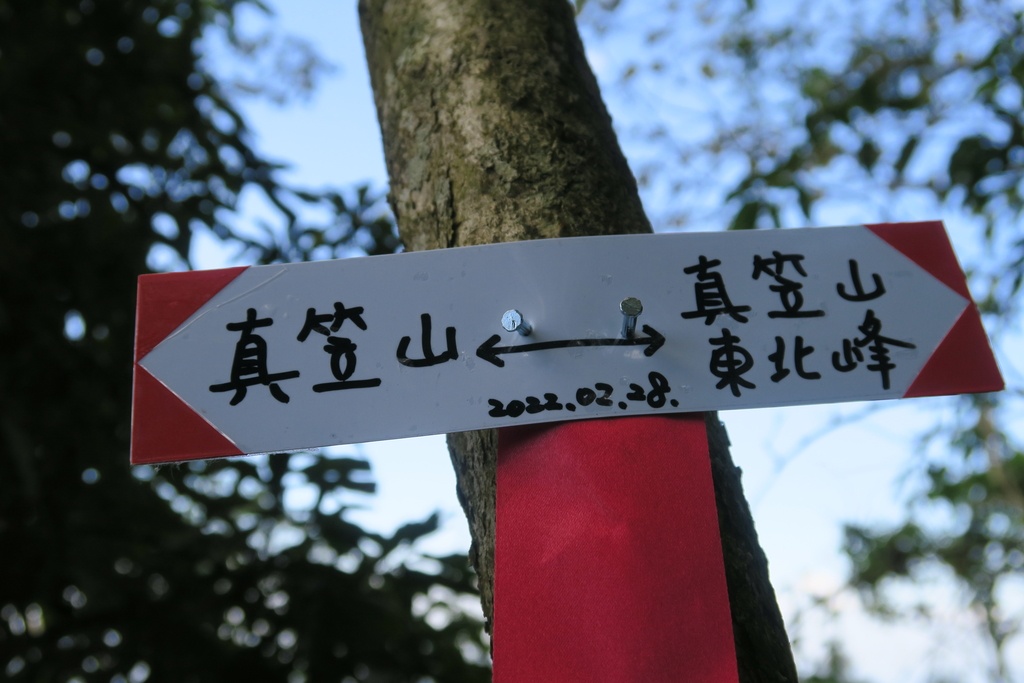 真笠山
真笠山
東北峰
2022.02.28.